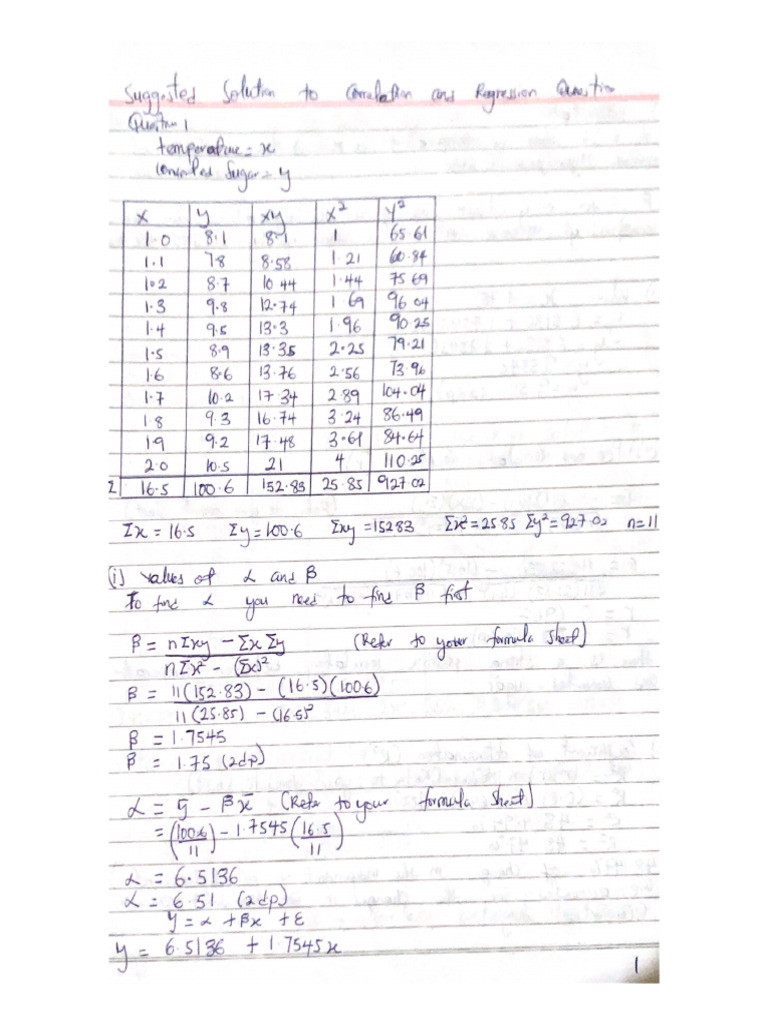 Suggested Solution to Correlation and Regression Question
Question 1
temperature = x
Converted Sugar = y
x y xy x² y²
1.0 8.1 8.1 1 65.61
1.1 7.8 8.58 1.21 60.84
1.2 8.7 10.44 1.44 75.69
1.3 9.8 12.74 1.69 96.04
1.4 9.5 13.3 1.96 90.25
1.5 8.9 13.35 2.25 79.21
1.6 8.6 13.76 2.56 73.96
1.7 10.2 17.34 2.89 104.04
1.8 9.3 16.74 3.24 86.49
1.9 9.2 17.48 3.61 84.64
2.0 10.5 21 4 110.25
Σ 16.5 100.6 152.83 25.85 927.02
Σx = 16.5 Σy = 100.6 Σxy = 152.83 Σx² = 25.85 Σy² = 927.02 n = 11
(i) values of α and β
To find α you need to find β first
β = nΣxy − Σx Σy (Refer to your formula sheet)
nΣx² − (Σx)²
β = 11(152.83) − (16.5)(100.6)
11(25.85) − (16.5)²
β = 1.7545
β = 1.75 (2dp)
α = ȳ − βx̄ (Refer to your formula sheet)
= (100.6/11) − 1.7545(16.5/11)
α = 6.5136
α = 6.51 (2dp)
y = α + βx + ε
y = 6.5136 + 1.7545x
1